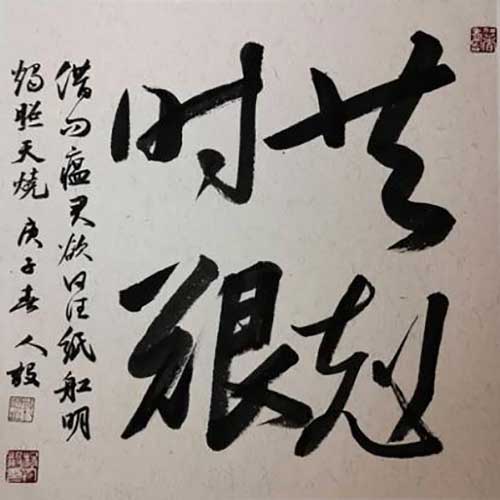 共克
时艰
借问瘟君欲何往纸船明
烛照天烧 庚子春 人毅